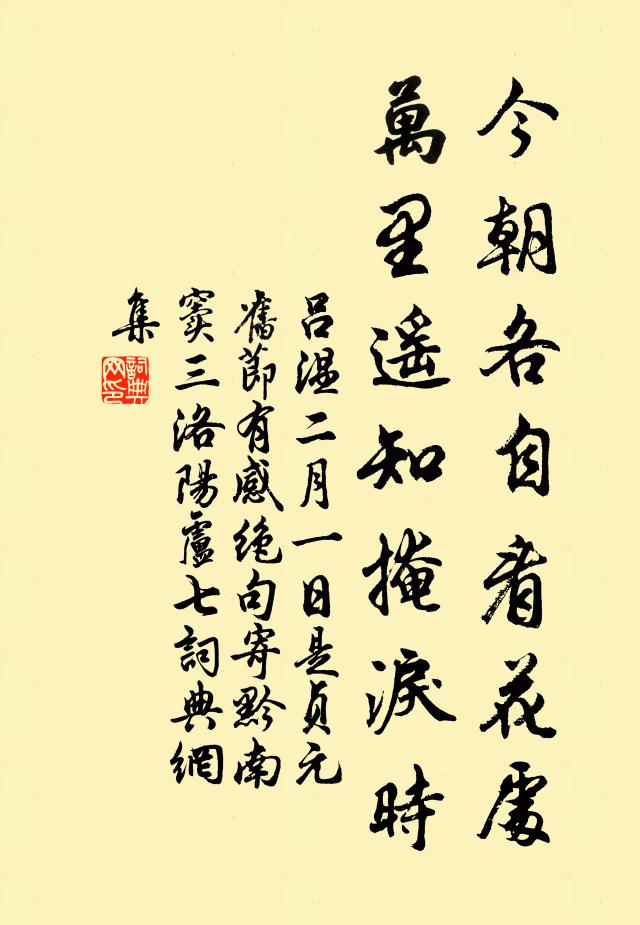 今朝各自看花處
萬里遥知掩淚時
吕温二月一日是贞元
舊節有感绝句寄黔南
竇三洛陽盧七詞典網
集
詞典
网印